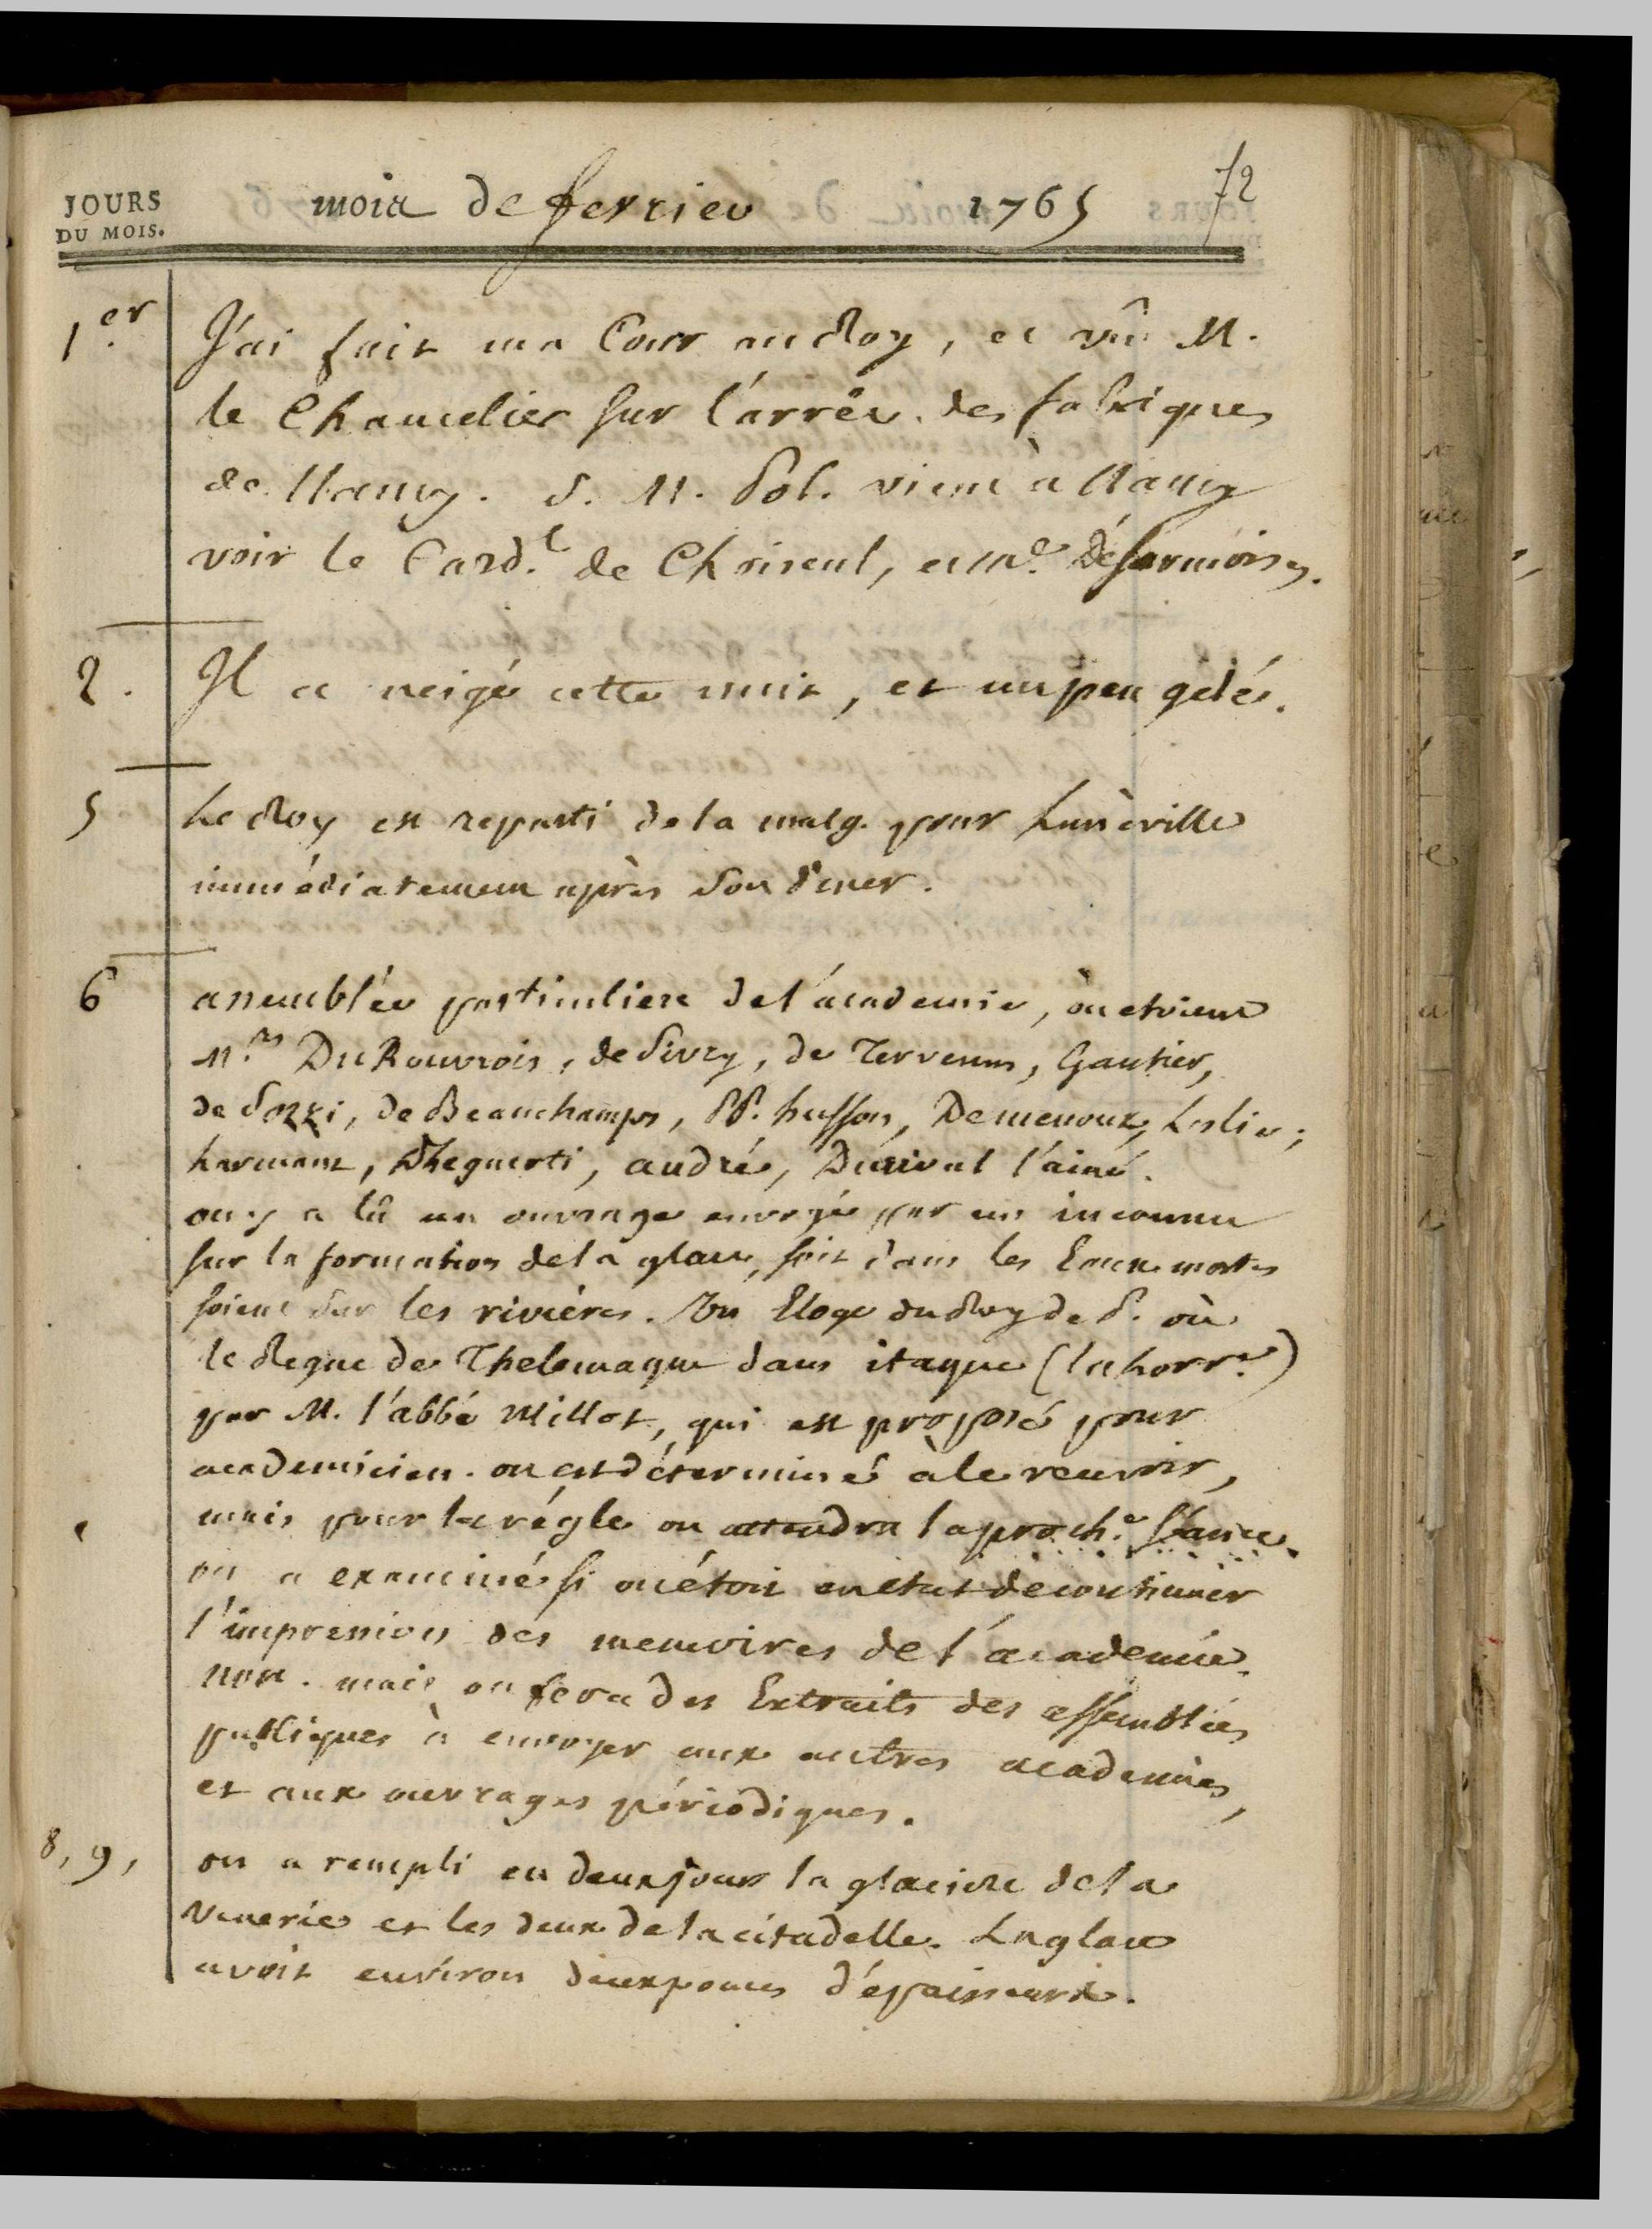 72
JOURS
DU MOIS.
mois de fevrier 1765
1.er J'ai fait ma Cour au Roy, et vû M.
le Chancelier sur l'arrêt des fabriques
de Nancy. S. M. Pol. vient à Nancy
voir le Card.l de Choiseul, et M.e Désarmoises.
2. Il a neigé cette nuit, et un peu gelé.
5 Le Roy est reparti de la malg. pour Lunéville
immédiatement après son diner.
6 assemblée particuliere de l'academie, où etoient
M.rs Du Rouvrois, de Sivry, de Tervenus, Gautier,
de Sozzi, de Beauchamps, PP. husson, Demenoux, Leslie;
harmant, Dheguerti, andré, Durival l'ainé.
on y a lû un ouvrage envoyé par un inconnu
sur la formation de la glace, soit dans les Eaux mortes
soient sur les rivières. Un Eloge du Roy de P. où
le Regne de Thelemaque dans itaque (la Lorr.e)
par M. l'abbé Millot, qui est proposé pour
academicien. on est déterminé à le recevoir,
mais pour la régle on attendra la proch.e séance.
on a examiné si on étoit en etat de continuer
l'impression des memoires de l'academie.
non. mais on fera des Extraits des assemblées
publiques à envoyer aux autres academies,
et aux ouvrages périodiques.
8, 9, on a rempli en deux jours la glaciere de la
Venerie et les deux de la citadelle. La glace
avoit environ deux pouces d'épaisseur.